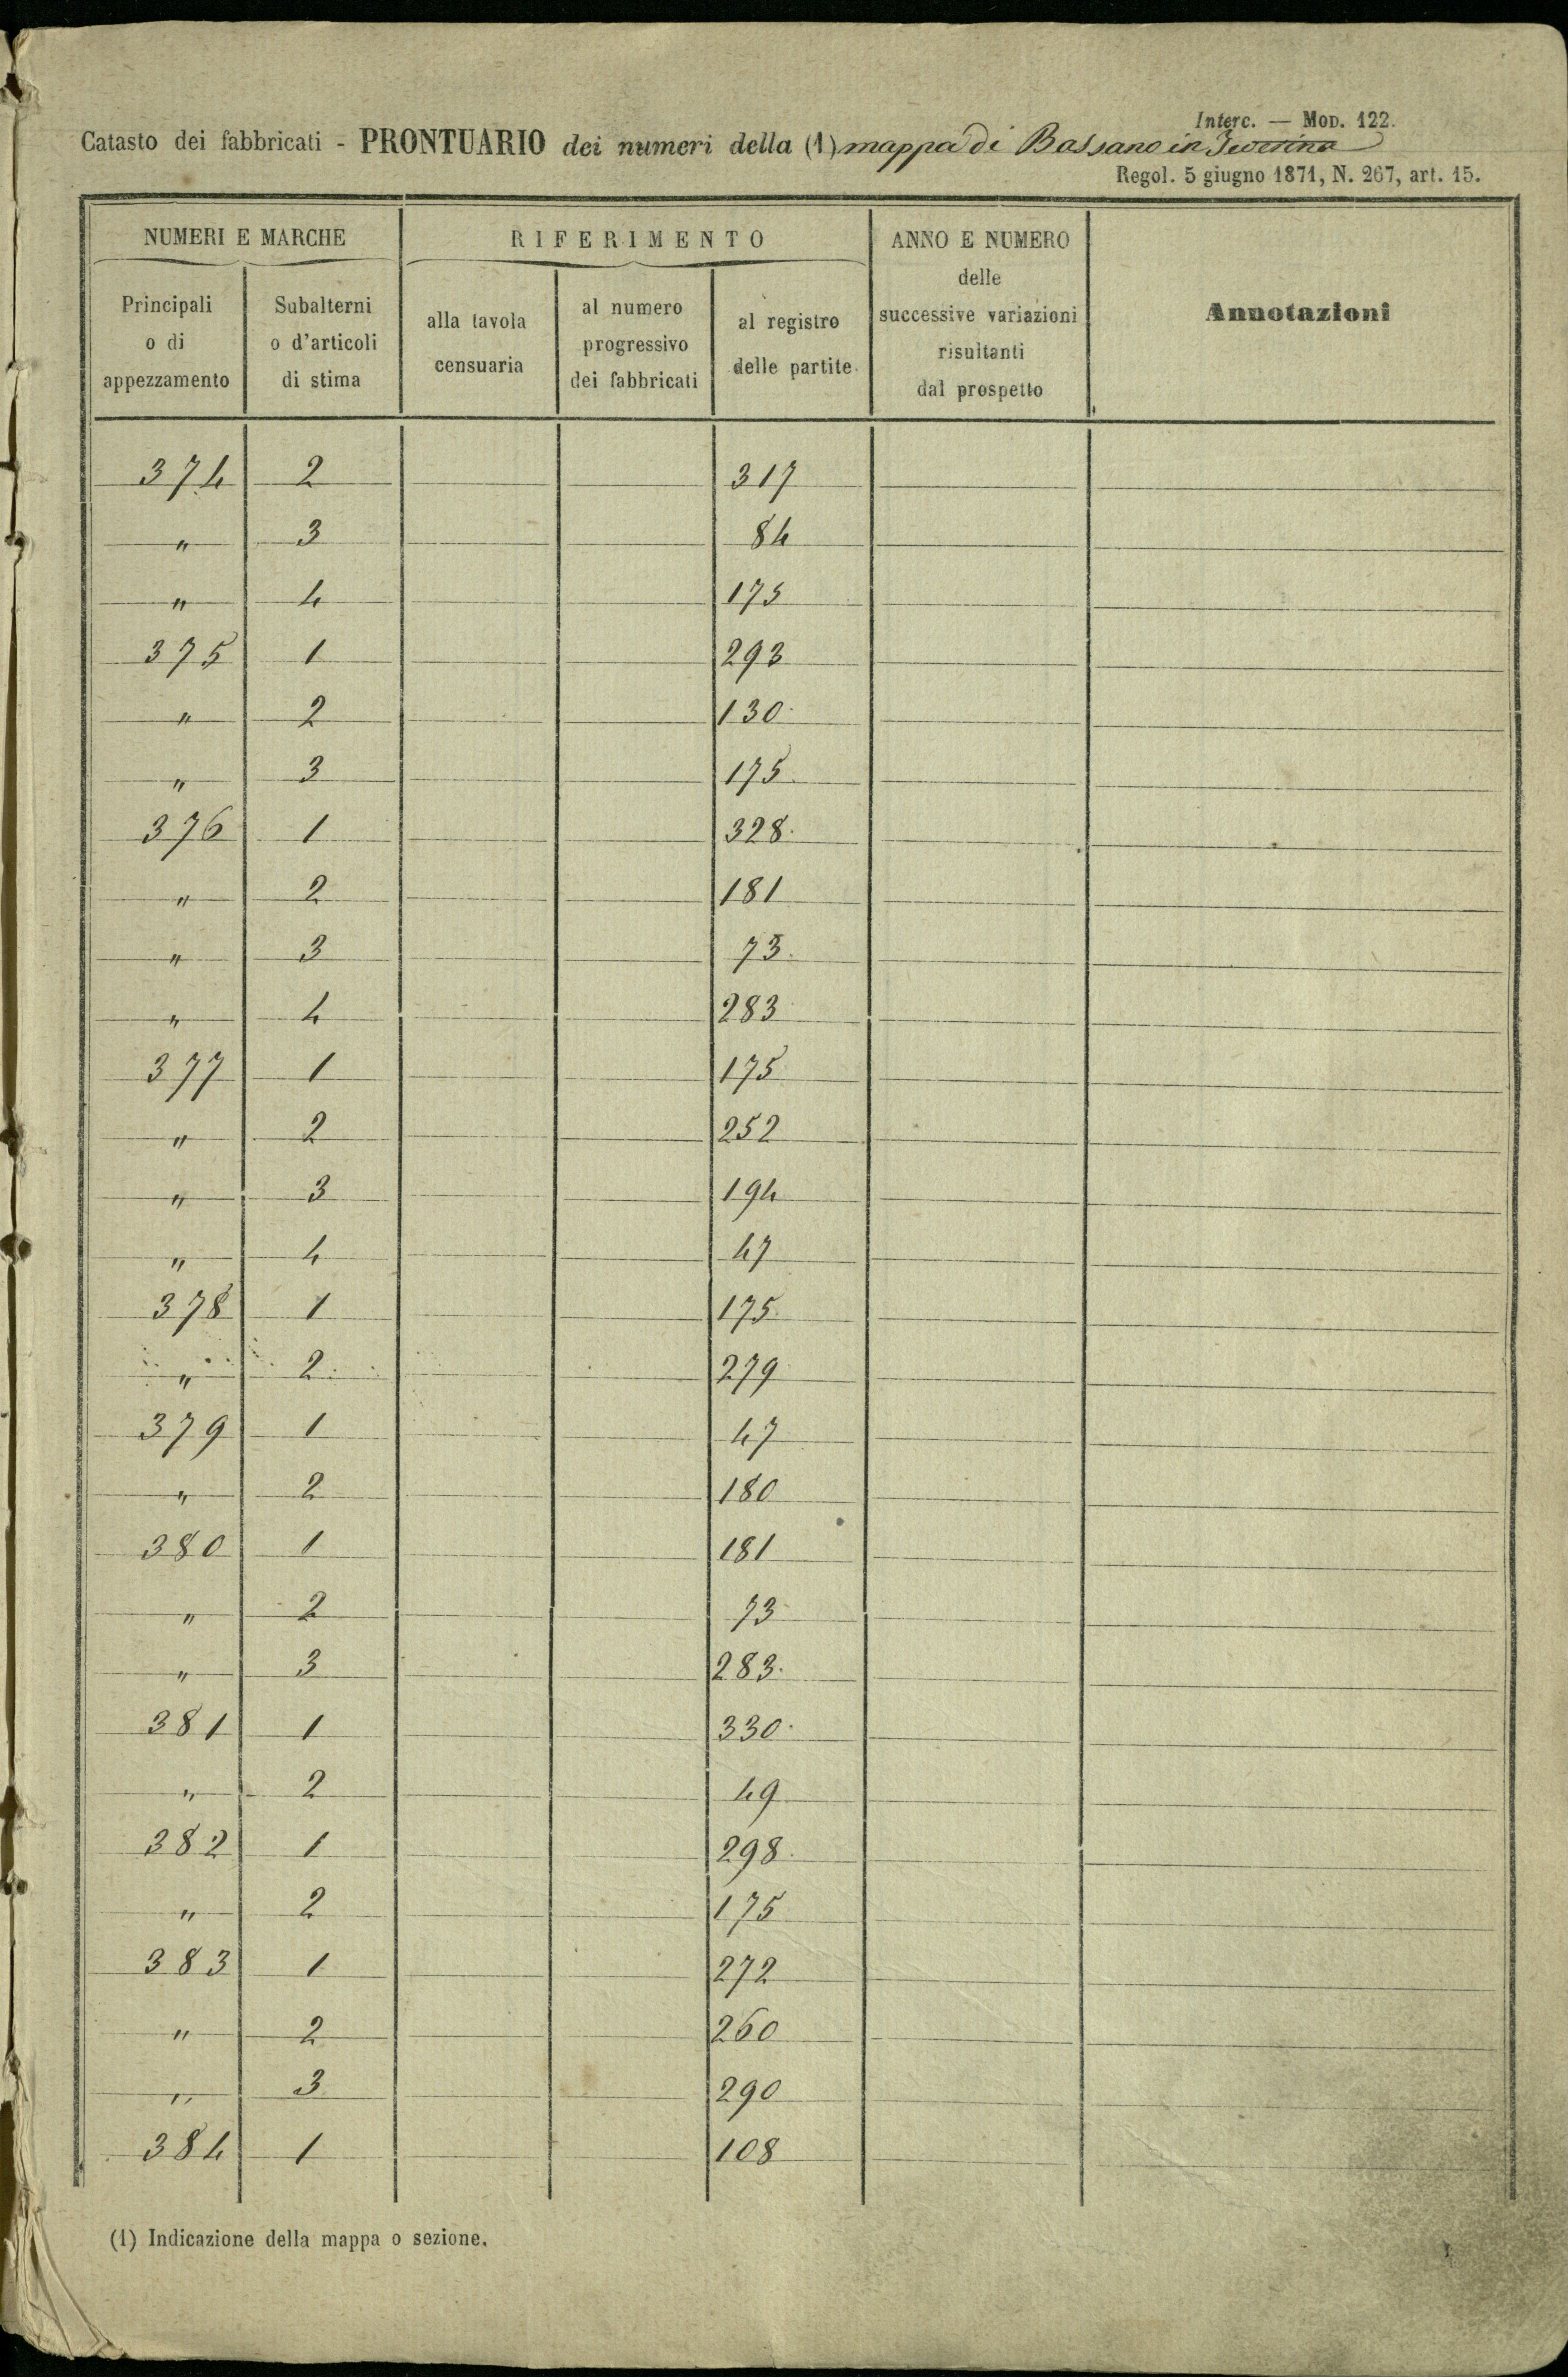 Interc. — Mod. 122.
Catasto dei fabbricati - PRONTUARIO dei numeri della (1) mappa di Bassano in Teverina
Regol. 5 giugno 1871, N. 267, art. 15.
NUMERI E MARCHE
Principali
o di
appezzamento
Subalterni
o d'articoli
di stima
RIFERIMENTO
alla tavola
censuaria
al numero
progressivo
dei fabbricati
al registro
delle partite
ANNO E NUMERO
delle
successive variazioni
risultanti
dal prospetto
Annotazioni
374 2 317
" 3 84
" 4 175
375 1 293
" 2 130
" 3 175
376 1 328
" 2 181
" 3 73
" 4 283
377 1 175
" 2 252
" 3 194
" 4 47
378 1 175
" 2 279
379 1 47
" 2 180
380 1 181
" 2 73
" 3 283
381 1 330
" 2 49
382 1 298
" 2 175
383 1 272
" 2 260
" 3 290
384 1 108
(1) Indicazione della mappa o sezione.